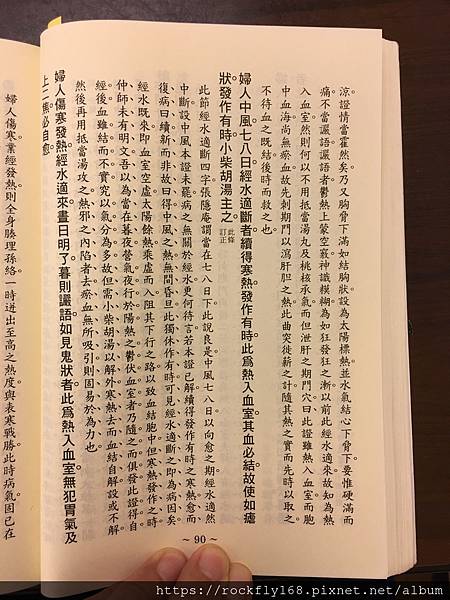 涼證情當霍然矣乃又胸脅下滿如結胸狀設為太陽標熱並水氣結心下脅下要惟硬滿而
痛不當讝語讝語者鬱熱上蒙空竅神識模糊為如狂發狂之漸以前此經水適來故知為熱
入血室然則何以不用抵當湯丸及桃核承氣而但泄肝之期門穴曰此證雖熱入血室而胞
中血海尚無瘀血故先刺期門以瀉肝膽之熱此曲突徙薪之計隨其熱之實而先時以取之
不待血之既結後時而救之也
婦人中風七八日經水適斷者續得寒熱發作有時此為熱入血室其血必結故使如瘧
狀發作有時小柴胡湯主之 此條訂正
此節經水適斷四字張隱庵謂當在七八日下此說良是中風七八日以向愈之期經水適然
中斷設中風本證未罷病之無關於經水更何待言若本證已解續得發作有時之寒熱愈而
復病曰續新而非故曰得中風之熱無間昏旦此獨休作有時可見經水適斷之即為病因矣
經水既來即血室空虛太陽餘熱乘虛而入阻其下行之路以致血結胞中但寒熱發作之時
仲師未有明文吾以為當在暮夜營氣夜行於陽熱之鬱伏血室者乃隨之而俱發此證得自
經後血雖結而不實究以氣分為多故但需小柴胡湯以解外寒熱去而血結自解設或不解
然後再用抵當湯攻之熱邪之內陷者去瘀血無所吸引則固易於為力也
婦人傷寒發熱經水適來晝日明了暮則讝語如見鬼狀者此為熱入血室無犯胃氣及
上二焦必自愈
~ 90 ~
婦人傷寒業經發熱則全身腠理孫絡一時迸出至高之熱度與表寒戰勝此時病氣固已在
https://rockfly168.pixnet.net/album